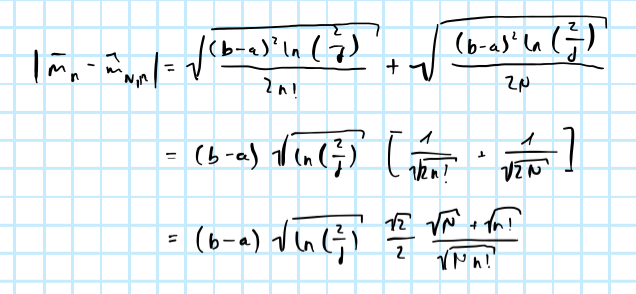 |m̄ₙ - m̂_{N,n}| = √((b-a)² ln(2/δ) / 2n!) + √((b-a)² ln(2/δ) / 2N)
= (b-a) √(ln(2/δ)) [1/√(2n!) + 1/√(2N)]
= (b-a) √(ln(2/δ)) √2/2 (√N + √n!)/√(N n!)